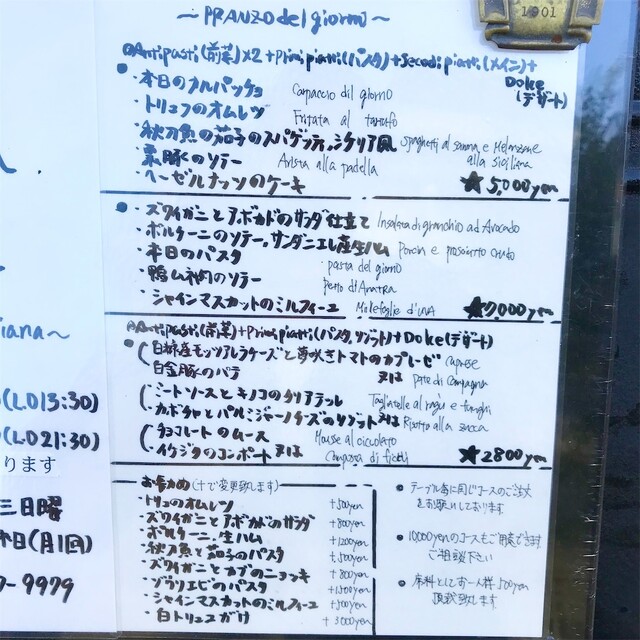 ~PRANZO del giorno~
1901
Antipasti(前菜)×2+Primi piatti(パスタ)+Secodi piatti(メイン)+
Dolce
(デザート)
・本日のカルパッチョ Carpaccio dil giorno
・トリュフのオムレツ Fritata al tartufo
・秋刀魚の茄子のスパゲッティ、シチリア風 Spaghetti al sanma e Melanzane
alla siciliana
・黒豚のソテー Arista alla padella
・ヘーゼルナッツのケーキ
★5,000yen
・ズワイガニとアボカドのサラダ仕立て Insalata di granchio ad Avocado
・ポルチーニのソテー、サンダニエレ産生ハム Porcini e prosciutto crudo
・本日のパスタ pasta del giorno
・鴨ムネ肉のソテー petto di Anatra
・シャインマスカットのミルフィーユ Millefoglie d'uva
★7,000yen
Antipasti(前菜)+Primi piatti(パスタ,リゾット)+Dolce(デザート)
・白糠産モッツァレラチーズと夢咲きトマトのカプレーゼ Caprese
又は
・白金豚のパテ Pate di Campagna
・ミートソースとキノコのタリアテッレ Tagliatelle al ragu e funghi
・カボチャとパルミジャーノチーズのリゾット 又は Risotto alla zucca
・チョコレートのムース Mousse al cioccolato
・イチジクのコンポート 又は Composta di fichi
★2800yen
お奨め(+で変更致します)
・トリュフのオムレツ +500yen
・ズワイガニとアボカドのサラダ +800yen
・ポルチーニ、生ハム +1200yen
・秋刀魚と茄子のパスタ +500yen
・ズワイガニとカブのニョッキ +800yen
・ゾウリエビのパスタ +1500yen
・シャインマスカットのミルフィーユ +500yen
・白トリュフがけ +3000yen
・テーブル毎に同じコースのご注文
をお願いしております
・10000yenのコースもご用意できます
ご相談下さい
・席料としてお一人様500yen
頂戴致します
iana~
(L.O13:30)
(L.O21:30)
ります
三日曜
日(月1回)
-9979